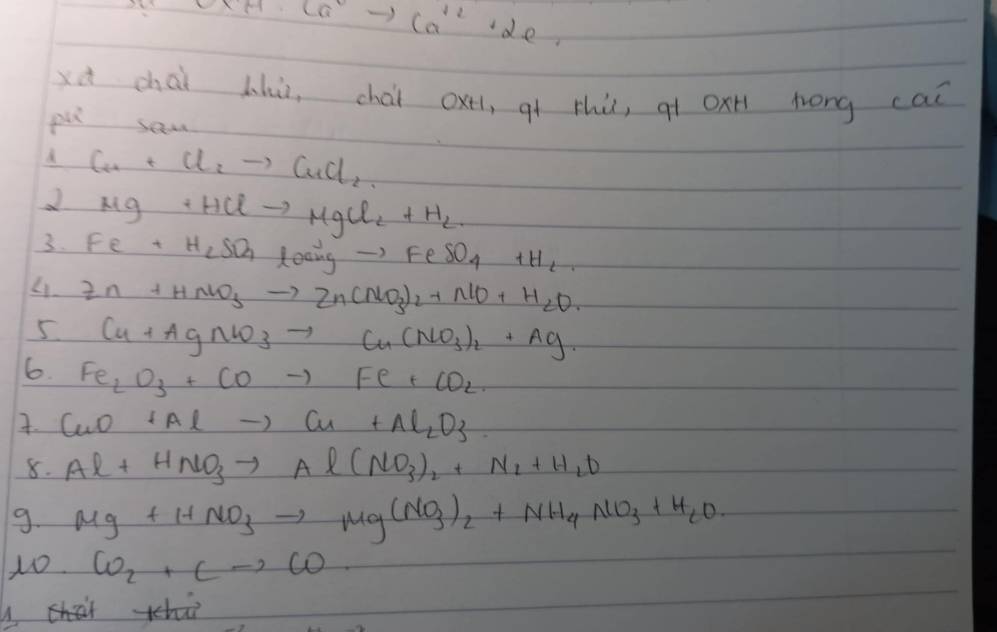 OXH. Ca⁰ → Ca⁺² +2e.
xđ chất khử, chất OXH, qt khử, qt OXH trong các
pứ sau
1 Cu + Cl₂ → CuCl₂.
2 Mg + HCl → MgCl₂ + H₂.
3. Fe + H₂SO₄ loãng → FeSO₄ + H₂.
4. Zn + HNO₃ → Zn(NO₃)₂ + NO + H₂O.
5. Cu + AgNO₃ → Cu(NO₃)₂ + Ag.
6. Fe₂O₃ + CO → Fe + CO₂.
7. CuO + Al → Cu + Al₂O₃.
8. Al + HNO₃ → Al(NO₃)₂ + N₂ + H₂O
9. Mg + HNO₃ → Mg(NO₃)₂ + NH₄NO₃ + H₂O.
10. CO₂ + C → CO.
1 chất khử